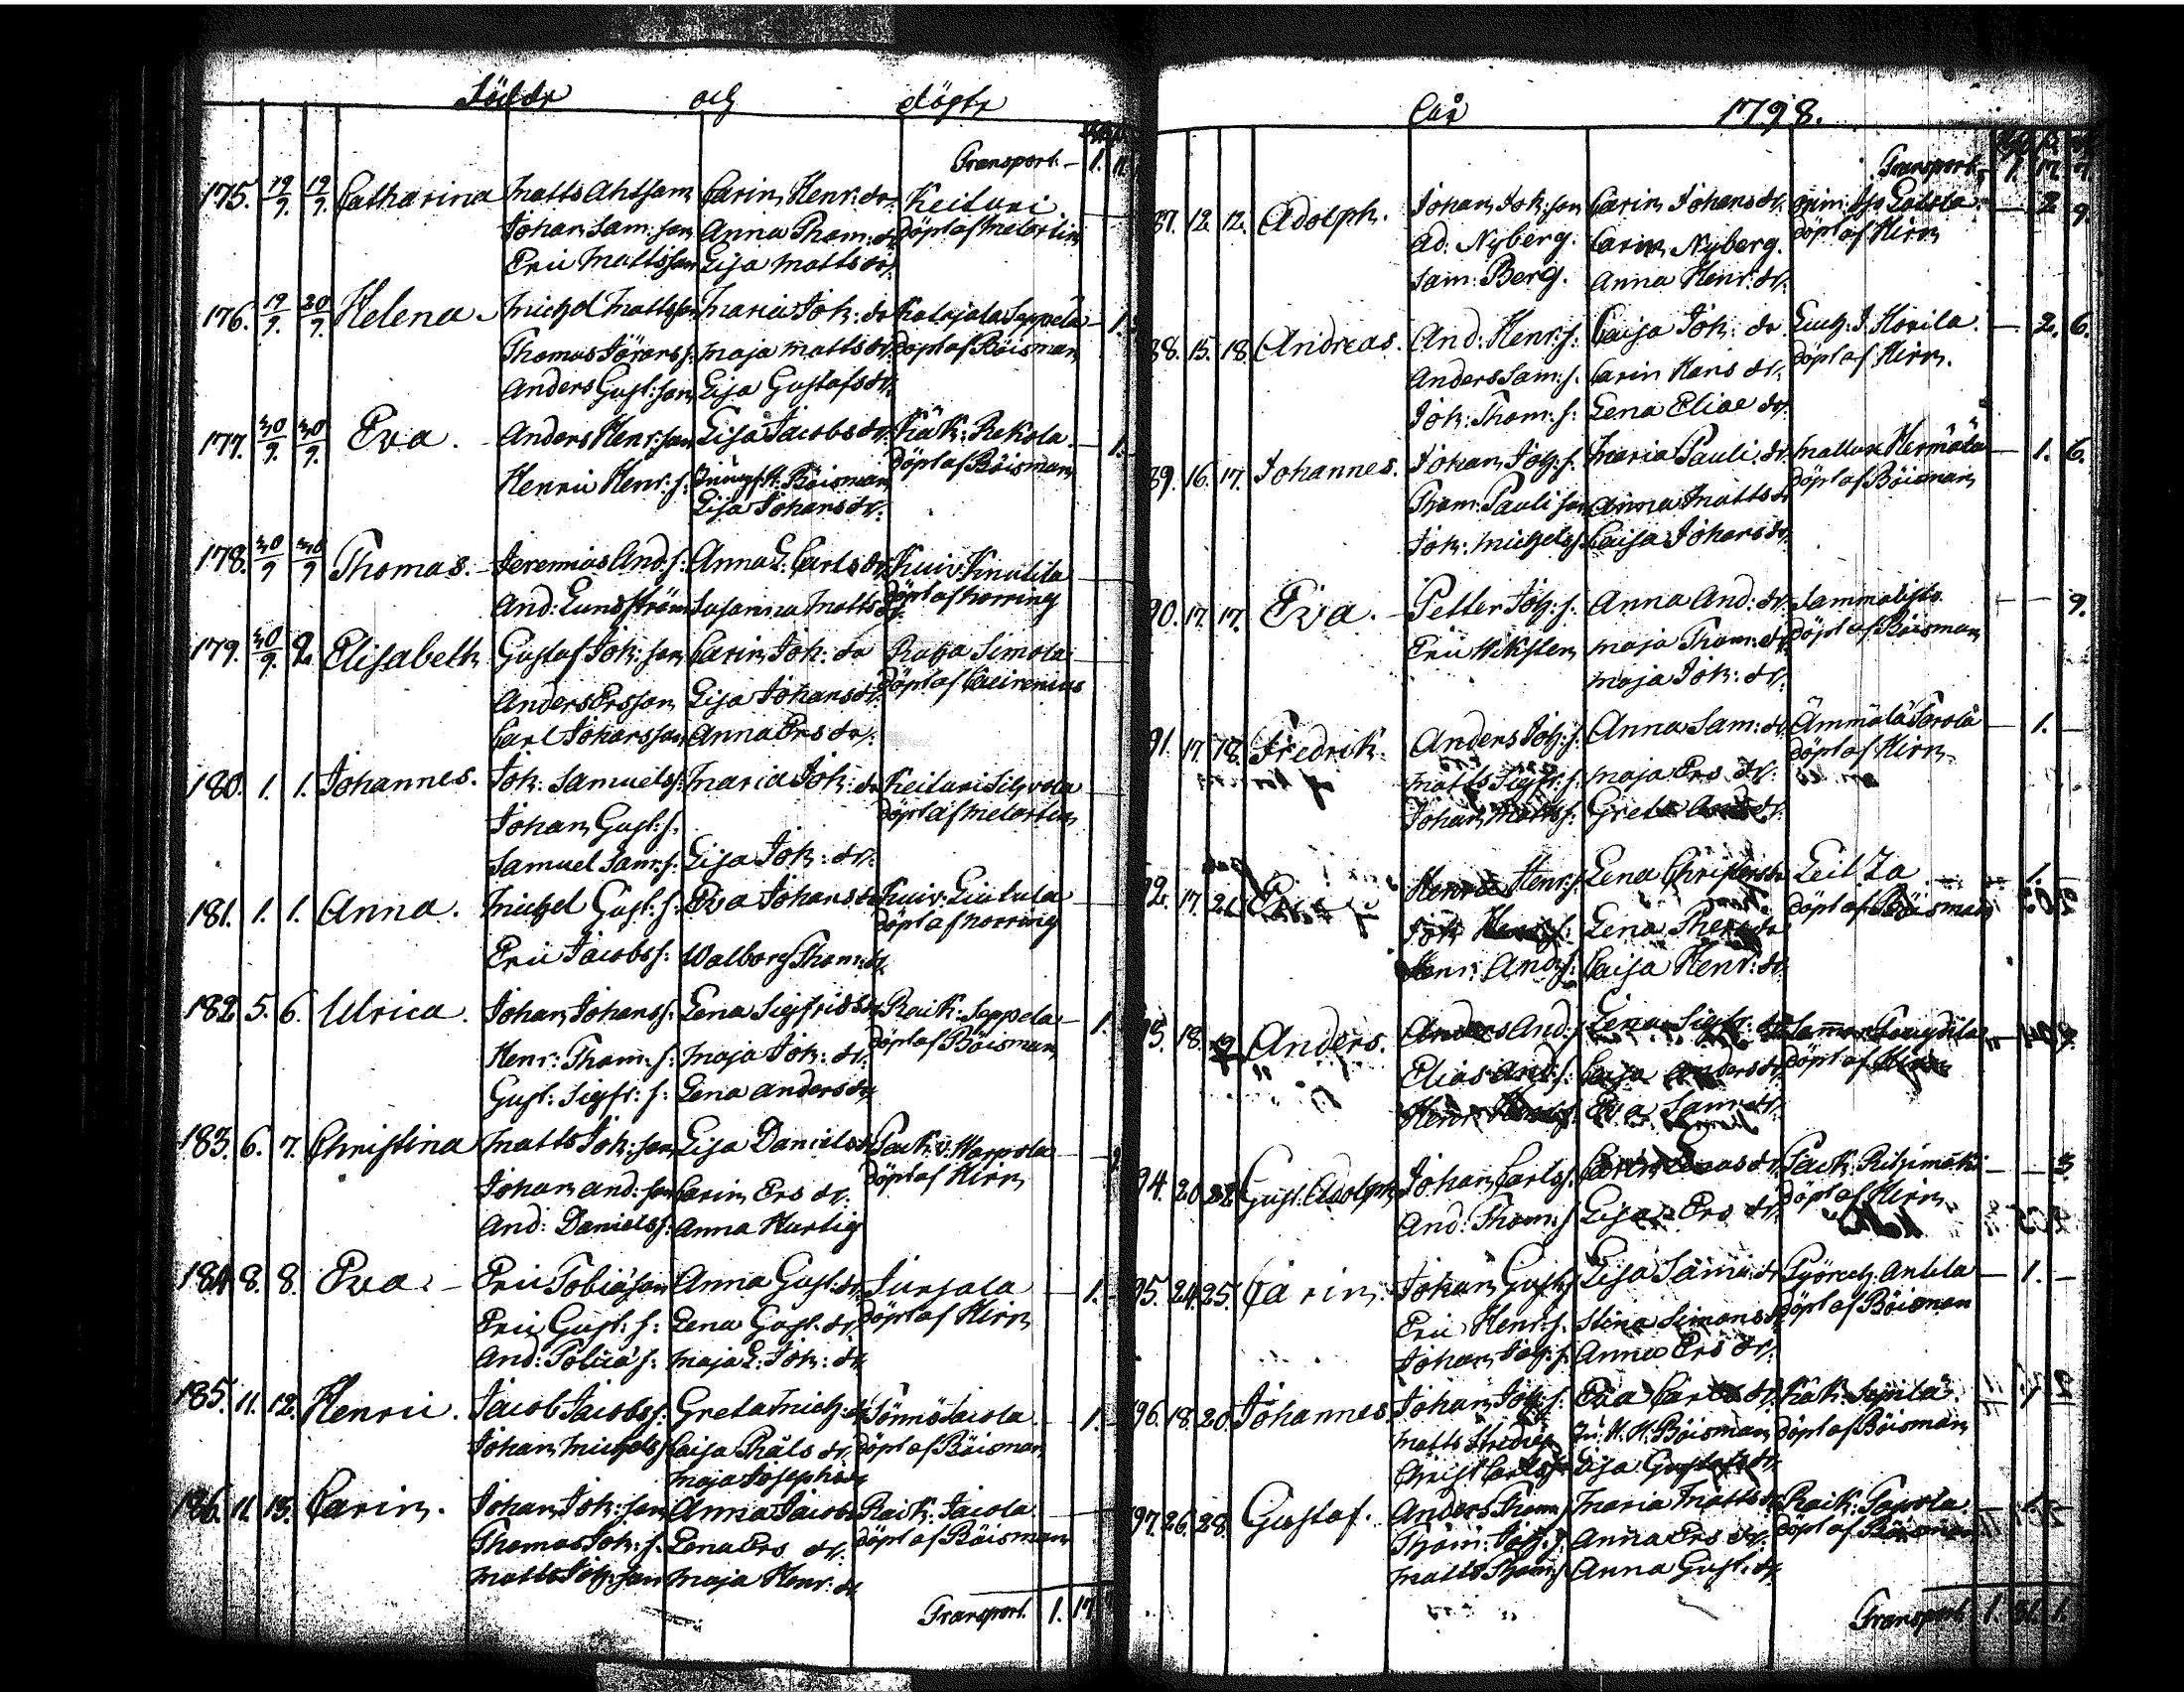 Födde och döpte
Transport. — 1. 11.
175. 19/9. 19/9. Catharina Matts Ahlsson Carin Henr: dr. Keituri
Johan Sam: son Anna Thom: dr. döpt af Melartin
Eric Mattsson Lisa Matts dr.
176. 19/9. 20/9. Helena. Michel Mattsson Maria Joh: dr Katajala Seppelä — 1.
Thomas Görans s. Maja Matts dr. döpt af Böisman
Anders Gust: son Lisa Gustafs dr.
177. 30/9. 30/9. Eva. Anders Henr: son Lisa Jacobs dr. Käk: Rekola — 1.
Henric Henr: s. Jungf. H. Böisman döpt af Böisman
Lisa Johans dr.
178. 30/9 30/9 Thomas. Jeremias And: s: Anna L. Carls dr. Kuiv: Knuutila
And: Lundström Susanna Matts dr. döpt af Norring
179. 30/9. 2. Elisabeth Gustaf Joh: son Carin Joh: dr Simola
Anders Ersson Lisa Johans dr. döpt af
Carl Johansson Anna Ers dr.
180. 1. 1. Johannes. Joh: Samuels s: Maria Joh: dr Keituri Silvola
Johan Gust: s. döpt af Melartin
Samuel Sam: s: Lisa Joh: dr.
181. 1. 1. Anna. Michel Gust: s: Eva Johans dr Kuiv: Liutula
Eric Jacobs s: Walborg Thom: dr. döpt af Norring
182. 5. 6. Ulrica. Johan Johans s: Lena Sigfrids dr Raik: Seppelä — 1.
Henr: Thom: s: Maja Joh: dr. döpt af Böisman
Gust: Sigfr: s: Lena Anders dr.
183. 6. 7. Christina Matts Joh: son Lisa Daniels dr Sack: v: Harpola
Johan And: son Carin Ers dr. döpt af Hirn
And: Daniels s: Anna Hurtig
184. 8. 8. Eva. — Eric Tobiæ son Anna Gust: dr. Jursala — 1.
Eric Gust: s: Lena Gust: dr. döpt af Hirn
And: Tobiæ s: Maja L: Joh: dr.
185. 11. 12. Henric. Jacob Jacobs s: Greta Mich: dr Sönnö Jacola — 1.
Johan Michels s: Caisa Påls dr. döpt af Böisman
Maja Josephs dr
186. 11. 13. Carin. Johan Joh: son Anna Jacobs Raik: Jacola
Thomas Joh: s. Lena Ers dr. döpt af Böisman
Matts Joh: son Maja Henr: dr
Transport. 1. 17.
åår 1798.
Transport. 1. 17. 9.
87. 12. 12. Adolph. Johan Joh: son Carin Johans dr. — 2 9.
Ad: Nyberg. Carin Nyberg. döpt af Hirn
Sam: Berg. Anna Henr: dr.
88. 15. 18. Andreas. And: Henr: s: Caisa Joh: dr. — 2. 6.
Anders Sam: s. Carin Hans dr. döpt af Hirn.
Joh: Thom: s: Lena Eliae dr.
89. 16. 17. Johannes. Johan Joh: s. Maria Pauli: dr. — 1. 6.
Thom: Pauli son Anna Matts dr döpt af Böisman
Joh: Michels s. Caisa Johans dr.
90. 17. 17. Eva. — Petter Joh: s. Anna And: dr. Sammalisto — — 9.
Eric Wiksten Maja Thom: dr. döpt af Böisman
Maja Joh: dr.
91. 17. 18. Fredrik. Anders Joh: s. Anna Sam: dr. Ämmälä Sarola — 1. —
Matts Sigfr: s. Maja Ers dr. döpt af Hirn
Johan Matts s: Greta
92. 17. 21. Henric Henr: s. Lena Christers dr 1.
Joh Lena döpt af Böisman
Henr: And: s. Caisa Henr: dr.
93. 18. Anders. Anders And: s Lena Sigfr: dr
Elias And: s. Caisa Anders dr. döpt af Hirn
Henr: Eva Sam: dr.
94. 20. 22. Gust. Adolph Johan Carls s. dr. Sack: Rihimäki — — 3
And: Thom: s Lisa Ers dr. döpt af Hirn
95. 24. 25. Carin. Johan Gust: s. Lisa Sam: dr Syörech. Antila — 1. —
Eric Henr: s. Stina Simons dr döpt af Böisman
Johan Joh: s. Anna Ers dr.
96. 18. 20. Johannes Johan Joh: s. Eva Carls dr. Käk: Sipilä — 1.
Matts Ju: H. H. Böisman döpt af Böisman
Christ Carls s. Lisa Gustafs dr.
97. 26. 28. Gustaf. Anders Thom: Maria Matts dr Raik: Papola — 1.
Thom: Joh: s. Anna Ers dr. döpt af Böisman
Matts Thom: s Anna Gust: dr.
Transport 1. 31. 1.